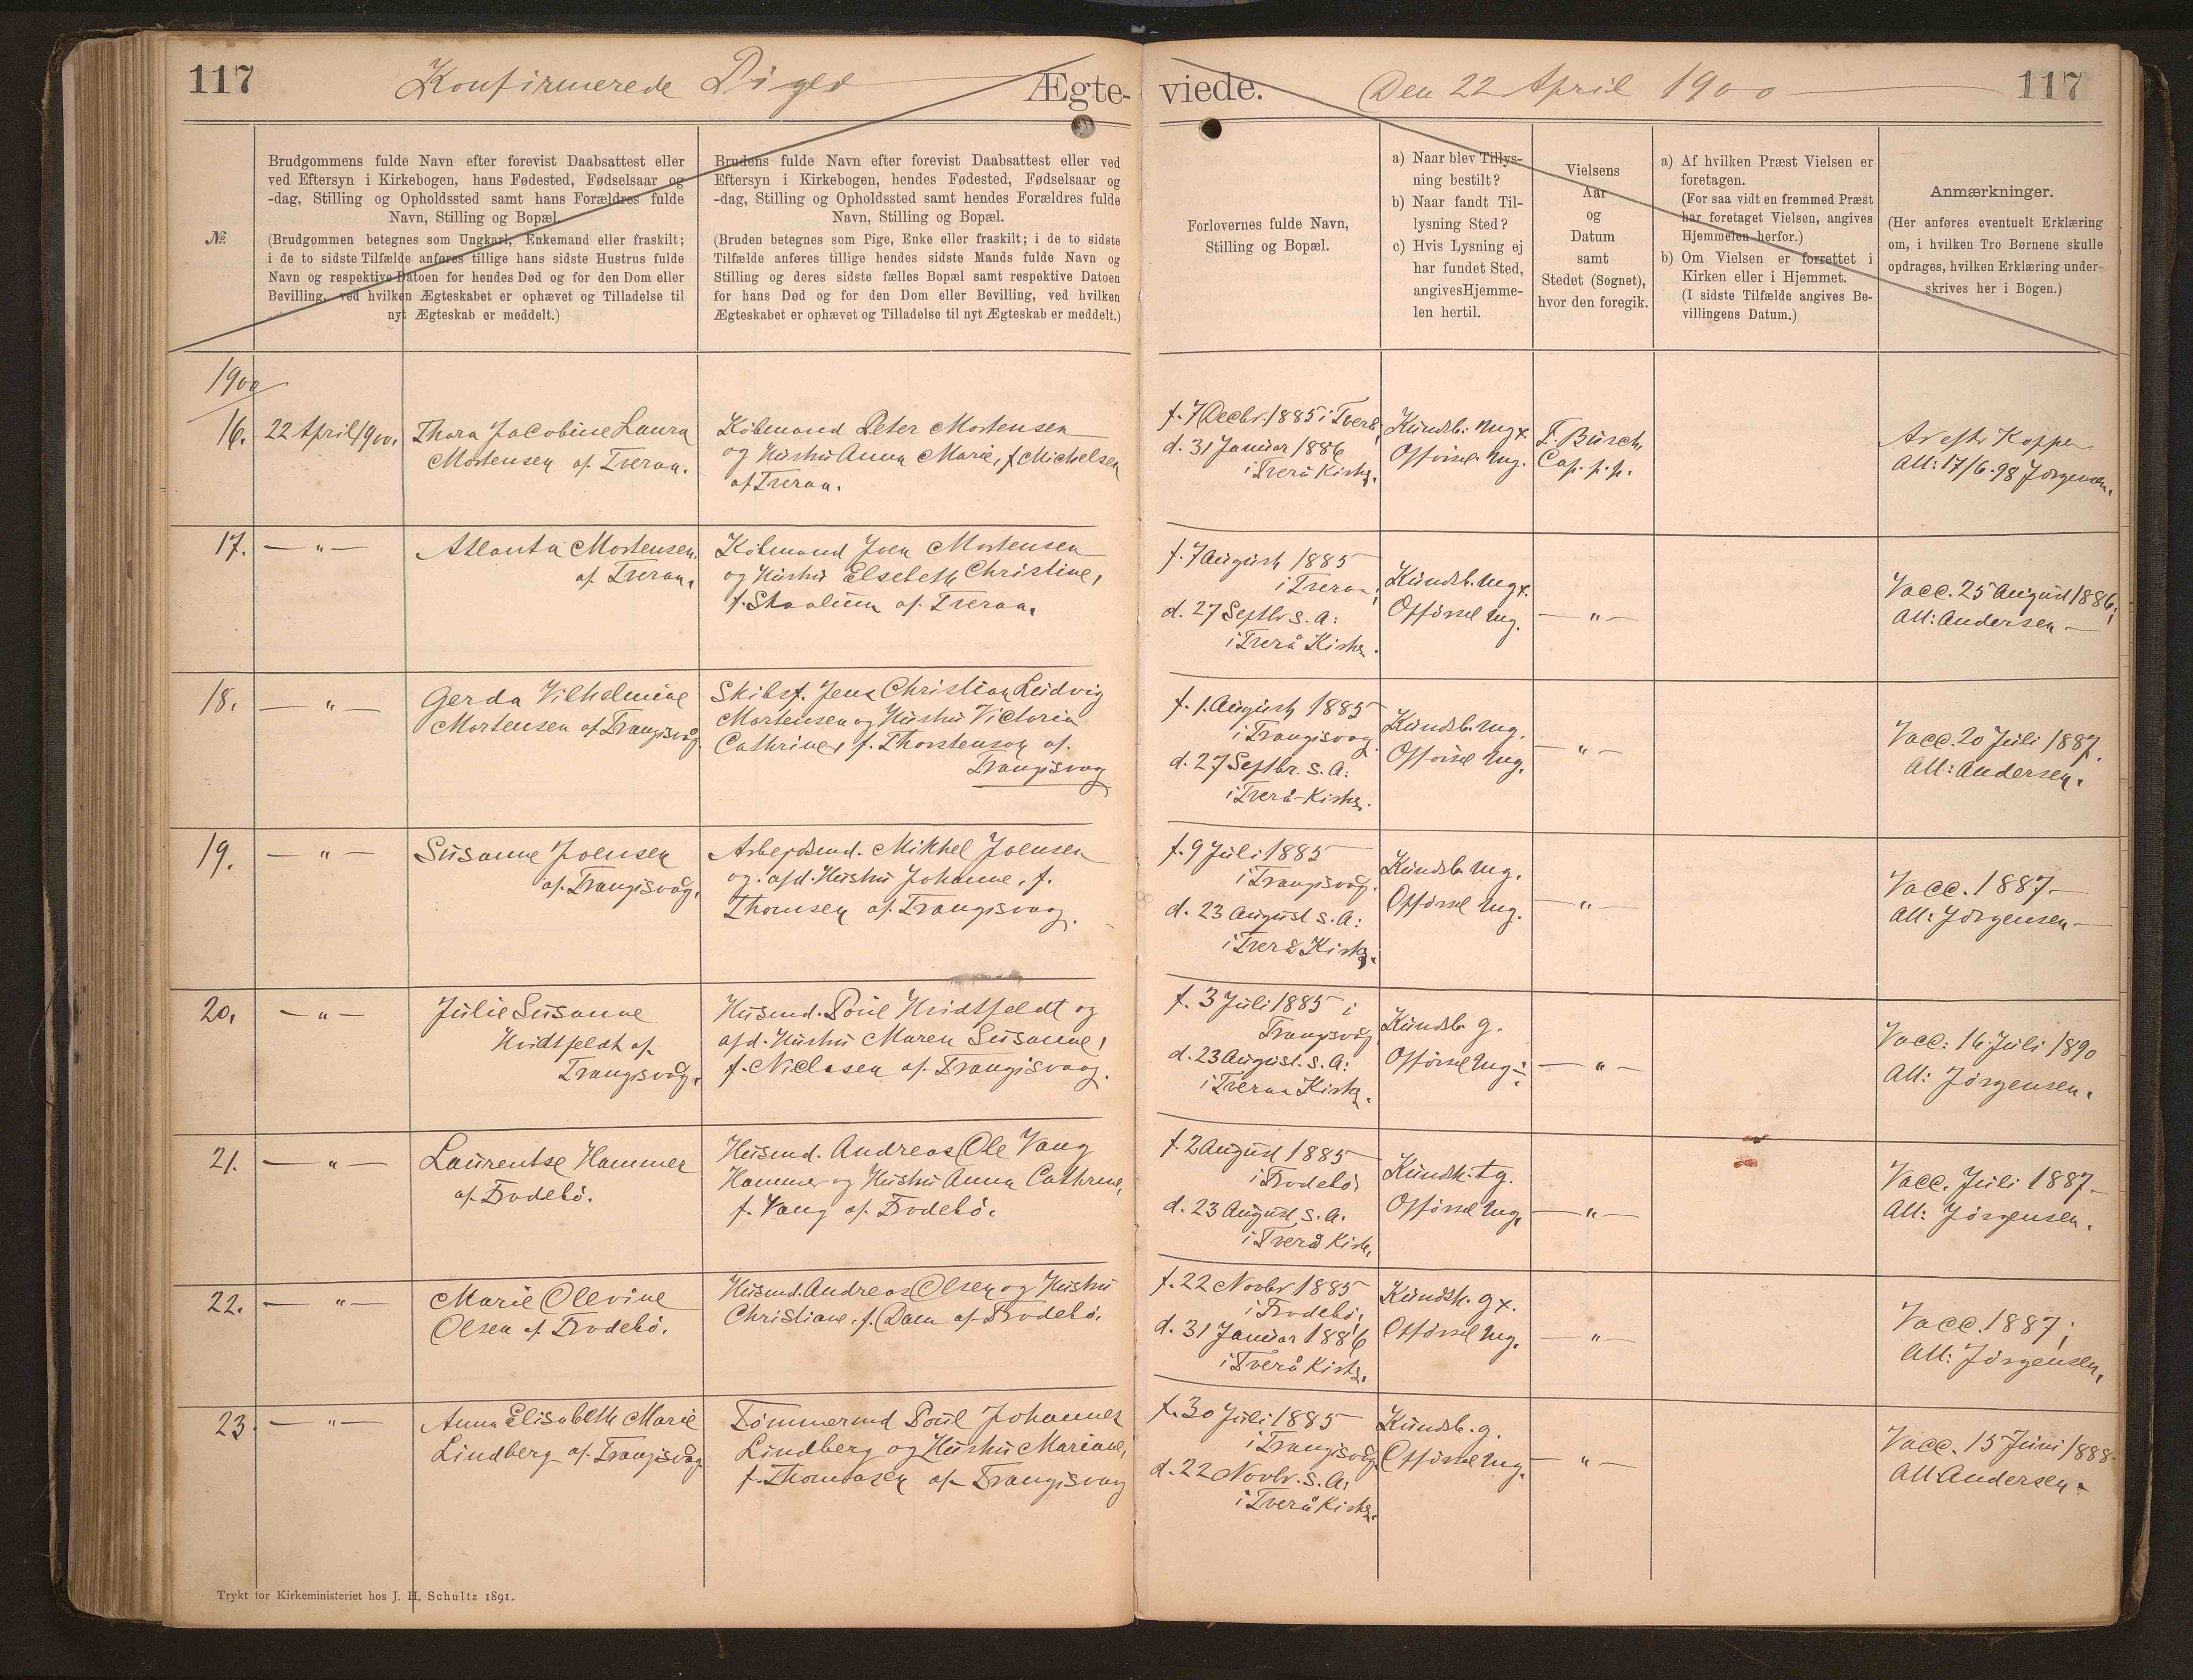 117 Konfirmerede Piger Ægte- viede. Den 22 April 1900 117
№
Brudgommens fulde Navn efter forevist Daabsattest eller
ved Eftersyn i Kirkebogen, hans Fødested, Fødselsaar og
-dag, Stilling og Opholdssted samt hans Forældres fulde
Navn, Stilling og Bopæl.
(Brudgommen betegnes som Ungkarl, Enkemand eller fraskilt;
i de to sidste Tilfælde anføres tillige hans sidste Hustrus fulde
Navn og respektive Datoen for hendes Død og for den Dom eller
Bevilling, ved hvilken Ægteskabet er ophævet og Tilladelse til
nyt Ægteskab er meddelt.)
Brudens fulde Navn efter forevist Daabsattest eller ved
Eftersyn i Kirkebogen, hendes Fødested, Fødselsaar og
-dag, Stilling og Opholdssted samt hendes Forældres fulde
Navn, Stilling og Bopæl.
(Bruden betegnes som Pige, Enke eller fraskilt; i de to sidste
Tilfælde anføres tillige hendes sidste Mands fulde Navn og
Stilling og deres sidste fælles Bopæl samt respektive Datoen
for hans Død og for den Dom eller Bevilling, ved hvilken
Ægteskabet er ophævet og Tilladelse til nyt Ægteskab er meddelt.)
Forlovernes fulde Navn,
Stilling og Bopæl.
a) Naar blev Tillys-
ning bestilt?
b) Naar fandt Til-
lysning Sted?
c) Hvis Lysning ej
har fundet Sted,
angivesHjemme-
len hertil.
Vielsens
Aar
og
Datum
samt
Stedet (Sognet),
hvor den foregik.
a) Af hvilken Præst Vielsen er
foretagen.
(For saa vidt en fremmed Præst
har foretaget Vielsen, angives
Hjemmelen herfor.)
b) Om Vielsen er forrettet i
Kirken eller i Hjemmet.
(I sidste Tilfælde angives Be-
villingens Datum.)
Anmærkninger.
(Her anføres eventuelt Erklæring
om, i hvilken Tro Børnene skulle
opdrages, hvilken Erklæring under-
skrives her i Bogen.)
1900
16. 22 April 1900.
Thora Jacobine Laura
Mortensen af Tveraa.
Købmand Peter Mortensen
og Hustru Anna Marie, f. Michelsen
af Tveraa.
f. 7 Decbr. 1885 i Tverå,
d. 31 Januar 1886
i Tverå Kirke.
Kundsk: mg x.
Opførsel mg.
F. Busch,
Cap. p. p.
Att: 17/6. 98 Jørgensen.
17. — " —
Atlanta Mortensen.
af Tveraa.
Købmand Joen Mortensen
og Hustru Elsebeth Christine,
f. Skaalum af Tveraa.
f. 7 August 1885
i Tveraa,
d. 27 Septbr s. A:
i Tverå Kirke.
Kundsk. mg x.
Opførsel mg.
— " —
Vacc. 25 August 1886;
Att: Andersen —
18. — " —
Gerda Vilhelmine
Mortensen af Trangisvåg.
Skibsf. Jens Christian Ludvig
Mortensen og Hustru Victoria
Cathrine, f. Thorstenson af.
Trangisvag
f. 1. August 1885
i Trangisvag
d. 27 Septbr. s. A:
i Tverå-Kirke.
Kundsk. mg.
Opførsel mg.
— " —
Vacc. 20 Juli 1887.
Att: Andersen.
19. — " —
Susanne Joensen
af. Trangisvåg.
Arbejdsmd. Mikkel Joensen
og. afd. Hustru Johanne, f.
Thomsen af. Trangisvaag.
f. 9 Juli 1885
i Trangisvåg.
d. 23 August s. A:
i Tverå Kirke.
Kundsk. mg.
Opførsel mg.
— " —
Vacc. 1887 —
Att: Jørgensen —
20. — " —
Julie Susanne
Hvidtfeldt af.
Trangisvåg.
Husmd. Poul Hvidtfeldt og
afd. Hustru Maren Susanne,
f. Niclasen af. Trangisvaag.
f. 3 Juli 1885 i
Trangisvåg
d. 23 August. s. A:
i Tveraa Kirke.
Kundsk. g.
Opførsel mg ÷
— " —
Vacc: 16 Juli 1890
Att: Jørgensen.
21. — " —
Laurentse Hammer
af. Frodebø.
Husmd. Andreas Ole Vang
Hammer og Hustru Anna Cathrine,
f. Vang af. Frodebø.
f. 2 August 1885
i Frodebø,
d. 23 August s. A.
i Tverå Kirke,
Kundsk. tg.
Opførsel mg.
— " —
Vacc. Juli 1887 —
Att: Jørgensen.
22. — " —
Marie Olevine
Olsen af Frodebø.
Husmd. Andreas Olsen og Hustru
Christiane, f. Dam af Frodebø.
f. 22 Novbr 1885
i Frodebø,
d. 31 Januar 1886
i Tverå Kirke.
Kundsk. g x.
Opførsel mg.
— " —
Vacc. 1887;
Att: Jørgensen,
23. — " —
Anna Elisabeth Marie
Lindberg af. Trangisvåg.
Tømmermd Poul Johannes
Lindberg og Hustru Mariane,
f. Thomasen af Trangisvag
f. 30 Juli 1885
i Trangisvåg.
d. 22 Novbr. s. A.
i Tverå Kirke.
Kundsk. g.
Opførsel mg.
— " —
Vacc. 15 Juni 1888.
Att Andersen.
Trykt for Kirkeministeriet hos J. H. Schultz 1891.